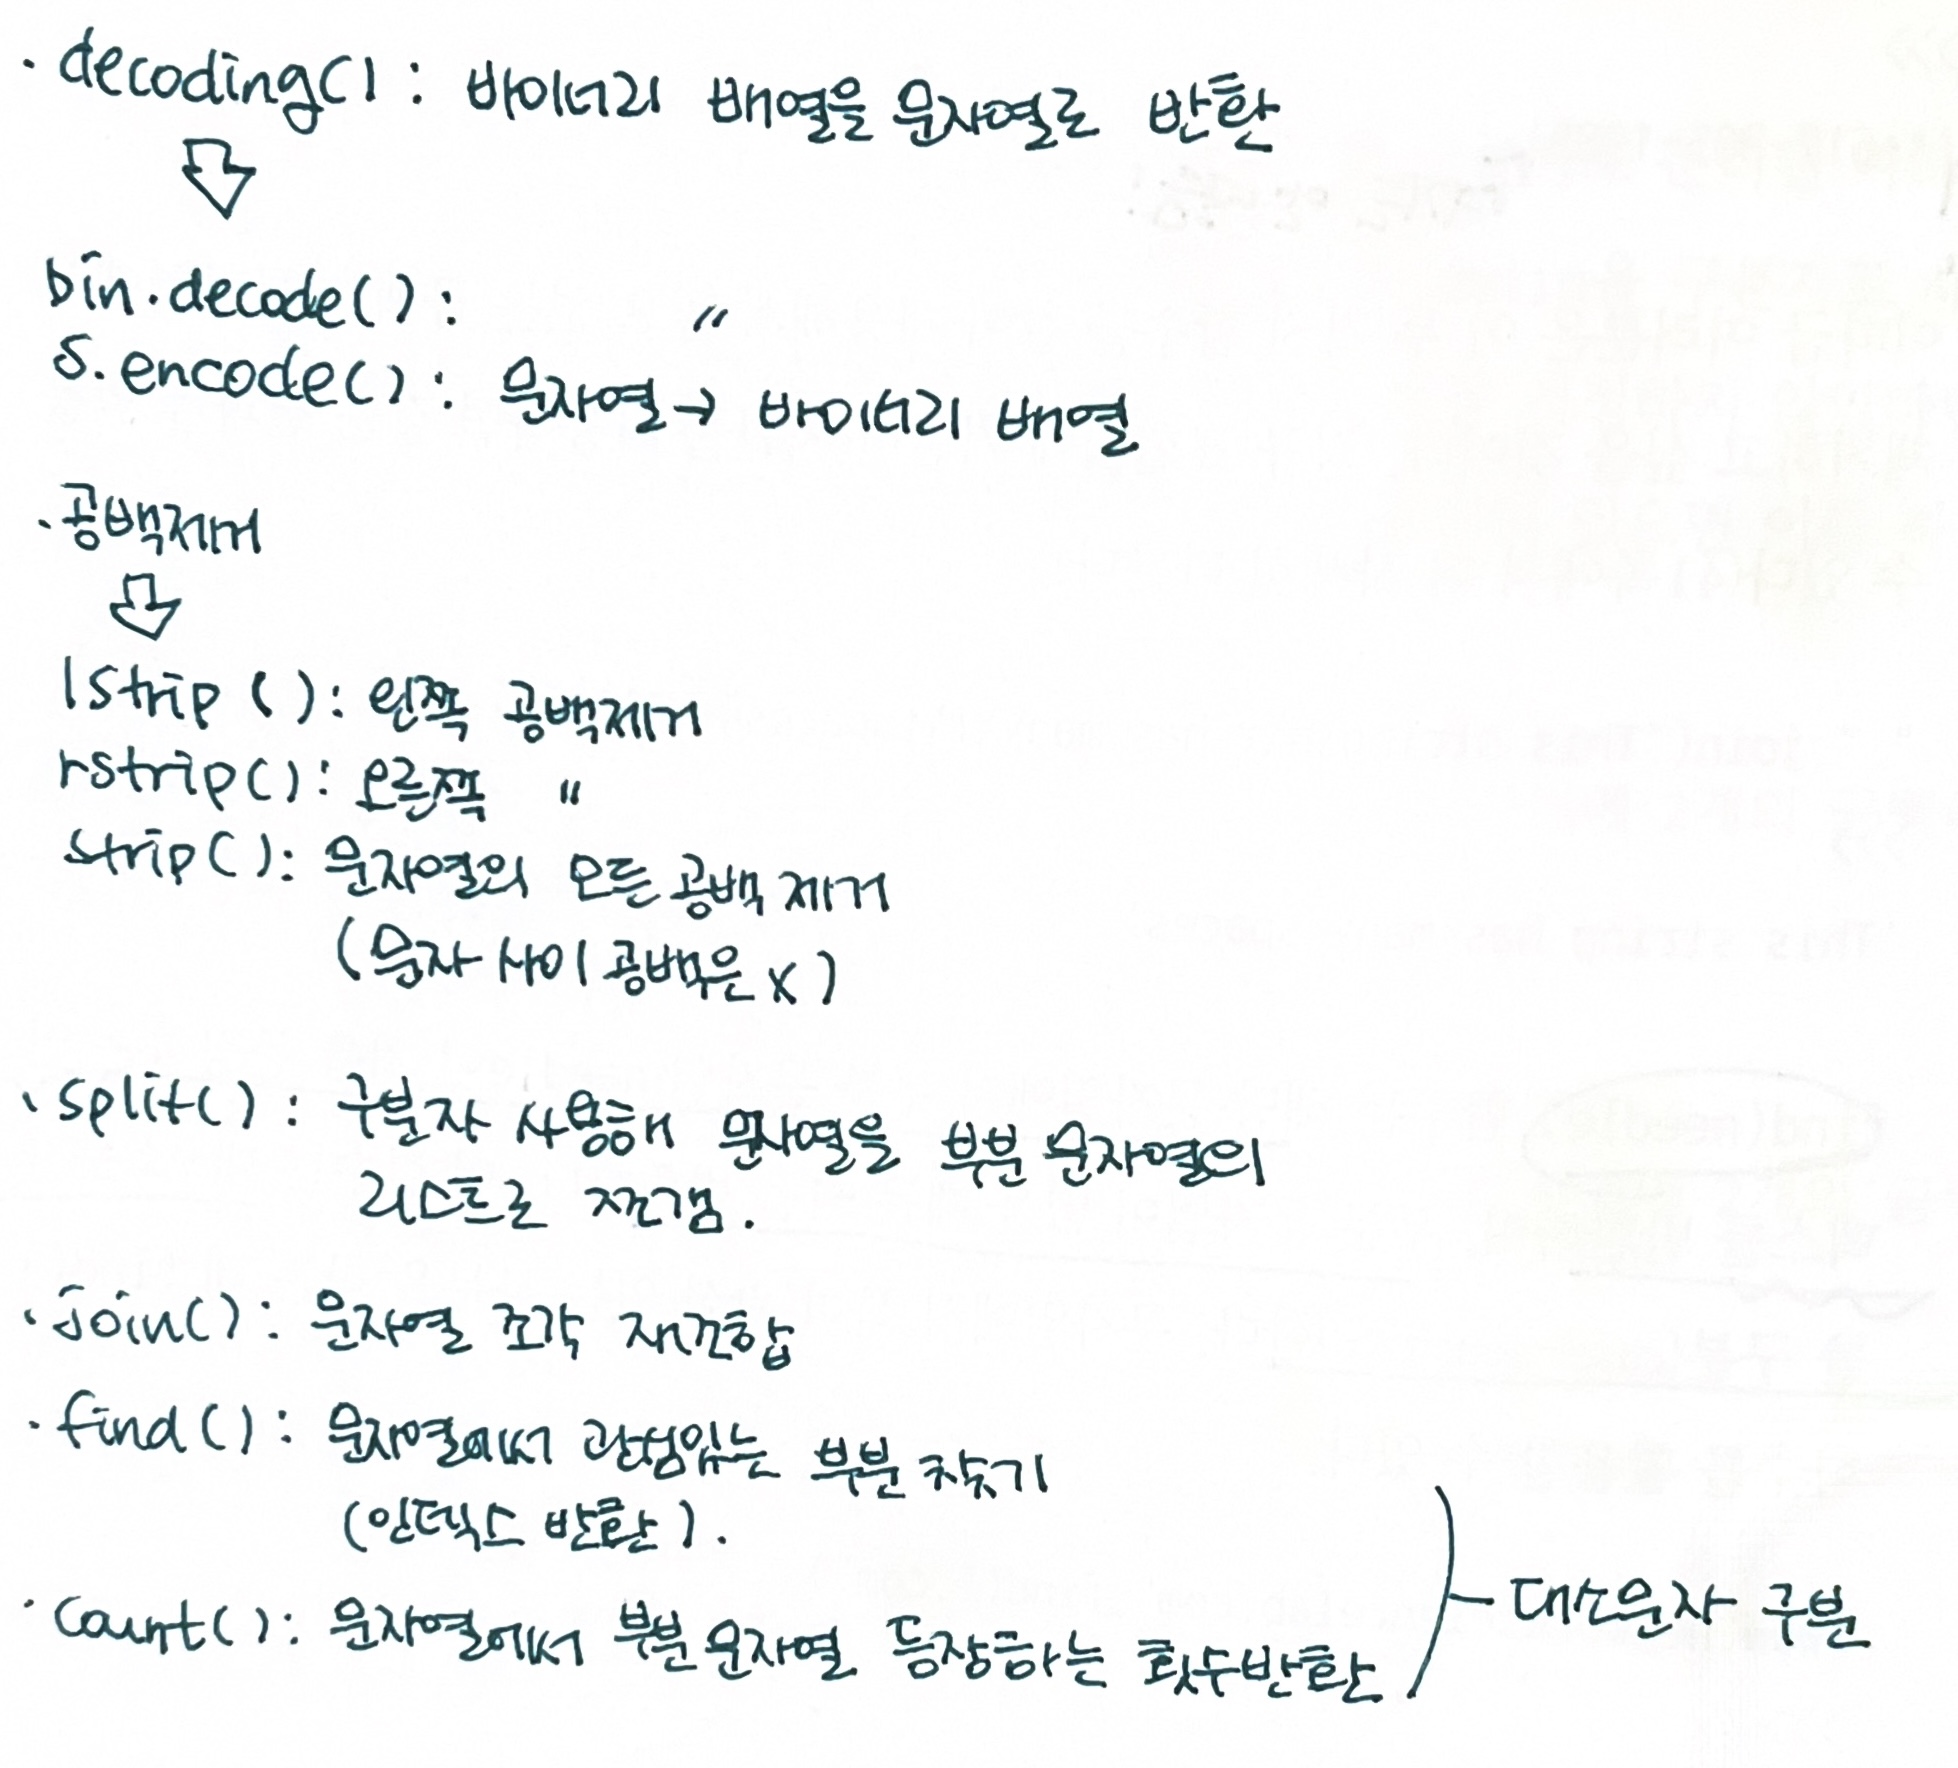 · decoding() : 바이너리 배열을 문자열로 반환
⇩
bin.decode() : 〃
S.encode() : 문자열 → 바이너리 배열
· 공백제거
⇩
lstrip () : 왼쪽 공백제거
rstrip() : 오른쪽 〃
strip() : 문자열의 모든 공백 제거
(문자 사이 공백은 X)
· split() : 구분자 사용해 문자열을 부분 문자열의
리스트로 쪼갬.
· join() : 문자열 조각 재조합
· find() : 문자열에서 관심있는 부분 찾기
(인덱스 반환).
· count() : 문자열에서 부분 문자열 등장하는 횟수반환
대소문자 구분